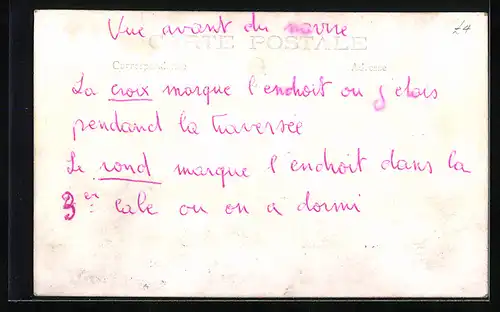 Vue avant du navire
£4
CARTE POSTALE
Correspondance
Adresse
La croix marque l'endroit ou j'etais
pendand la traversée
Le rond marque l'endroit dans la
3er cale ou on a dormi